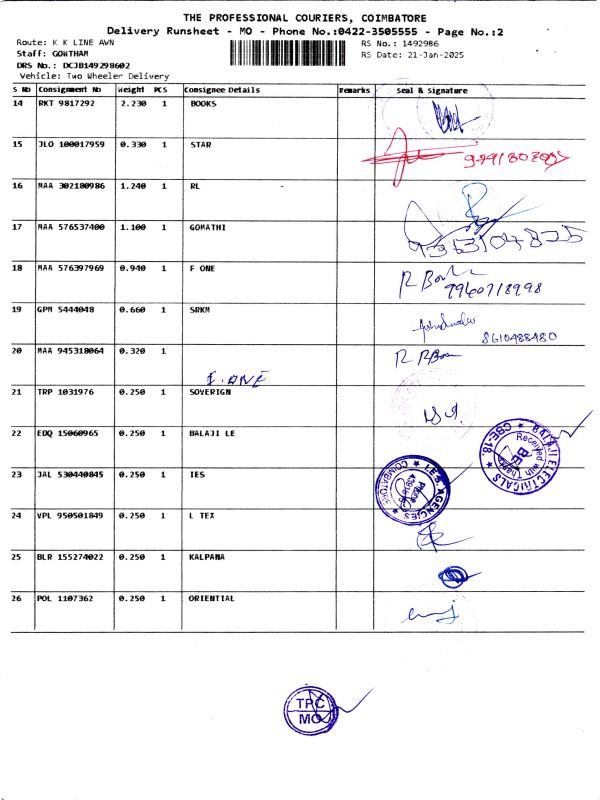 THE PROFESSIONAL COURIERS, COIMBATORE
Delivery Runsheet - MO - Phone No.:0422-3505555 - Page No.:2
Route: K K LINE AWN RS No.: 1492986
Staff: GOWTHAM RS Date: 21-Jan-2025
DRS No.: DCJB149298602
Vehicle: Two Wheeler Delivery
S No Consignment No Weight PCS Consignee Details Remarks Seal & Signature
14 RKT 9817292 2.230 1 BOOKS
15 JLO 100017959 0.330 1 STAR
16 MAA 302180986 1.240 1 RL
17 MAA 576537400 1.100 1 GOMATHI
9353104825
18 MAA 576397969 0.940 1 F ONE
9960718998
19 GPM 5444048 0.660 1 SRKM
8610488480
20 MAA 945318064 0.320 1
I.ONE
21 TRP 1031976 0.250 1 SOVERIGN
22 EDQ 15060965 0.250 1 BALAJI LE
BALAJI ELECTRICALS
CBE-18.
Received with Thanks
23 JAL 530440845 0.250 1 IES
I.E.S. AGENCIES
COIMBATORE
Phone
24 VPL 950501849 0.250 1 L TEX
25 BLR 155274022 0.250 1 KALPANA
26 POL 1107362 0.250 1 ORIENTIAL
TPC
MO